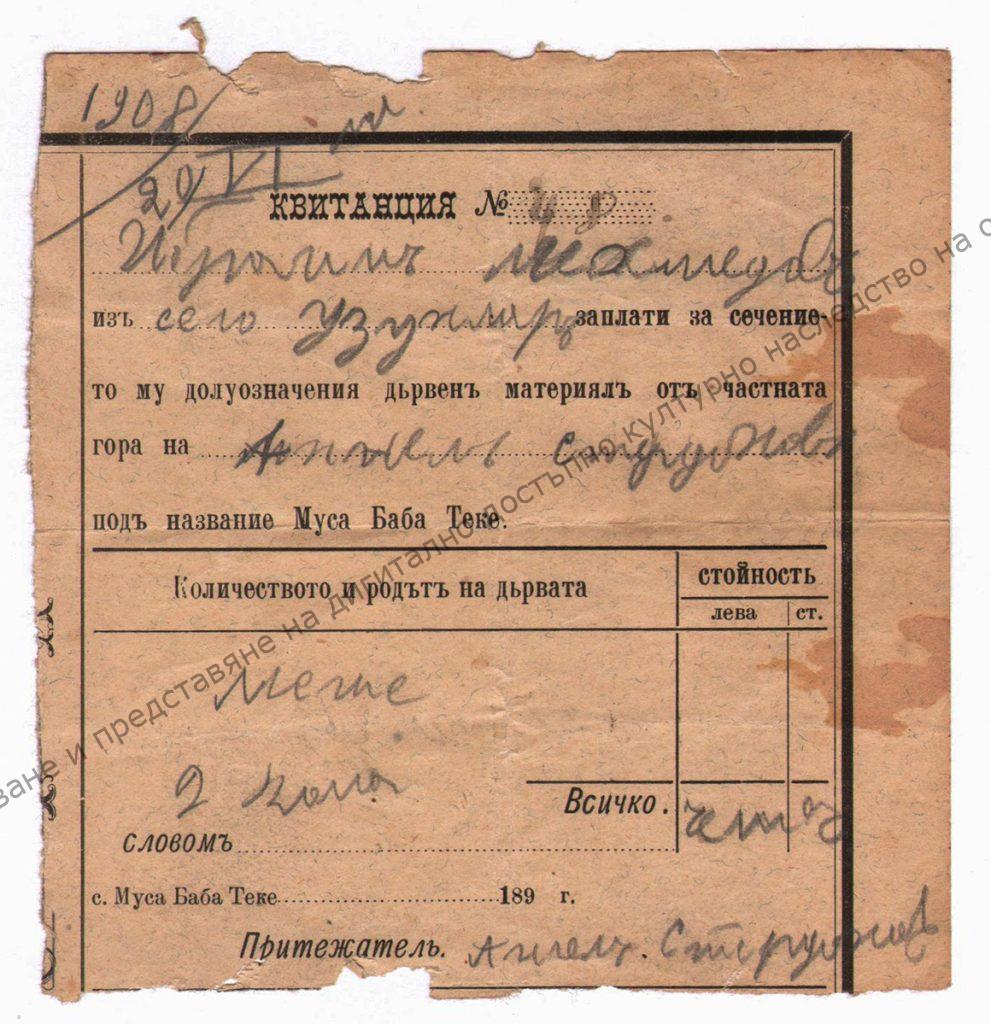 1908
29 VI
КВИТАНЦИЯ №
Ибраимъ Мехмедовъ
изъ село Узунларъ заплати за сечение-
то му долуозначения дървенъ материялъ отъ частната
гора на Ангелъ
подъ название Муса Баба Теке.
Количеството и родътъ на дървата
стойность
лева ст.
Меше
2 кола
Всичко.
словомъ
с. Муса Баба Теке 189 г.
Притежатель. Ангелъ
ване и представяне на дигитално достъпно културно наследство на о